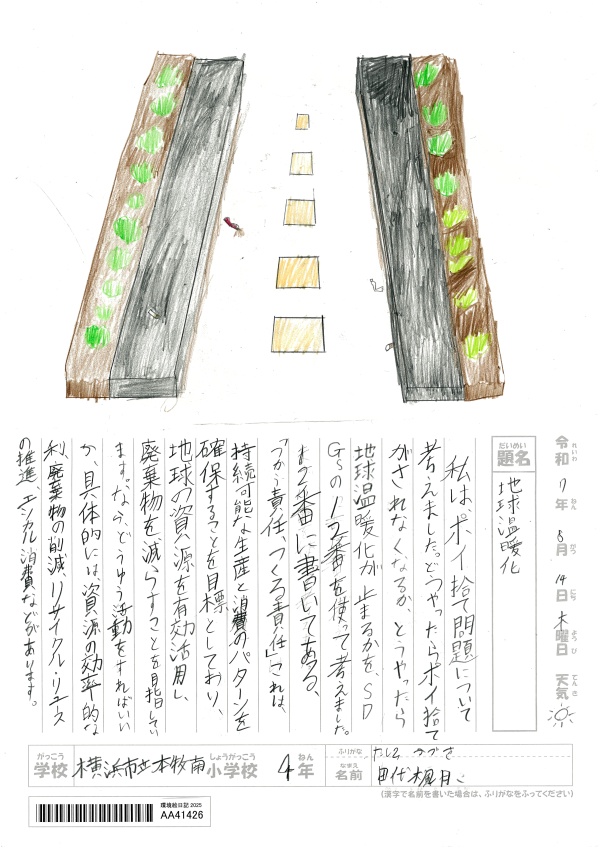 令和7年8月14日木曜日 天気
れいわ ねん がつ にち ようび てんき
だいめい
題名
地球温暖化
私はポイ捨て問題について
考えました。どうやったらポイ捨て
がされなくなるか、どうやったら
地球温暖化が止まるかを、SD
GSの12番を使って考えました。
12番に書いてある、
「つかう責任、つくる責任」これは、
持続可能な生産と消費のパターンを
確保することを目標としており、
地球の資源を有効活用し、
廃棄物を減らすことを目指してい
ます。なら、どうゆう活動をすればいい
か、具体的には、資源の効率的な
利、廃棄物の削減、リサイクル・リユース
の推進、エシカル消費などがあります。
がっこう しょうがっこう ねん
学校 横浜市立本牧南小学校 4年
ふりがな
なまえ
名前 田代楓
(漢字で名前を書いた場合は、ふりがなをふってください)
環境絵日記 2025
AA41426